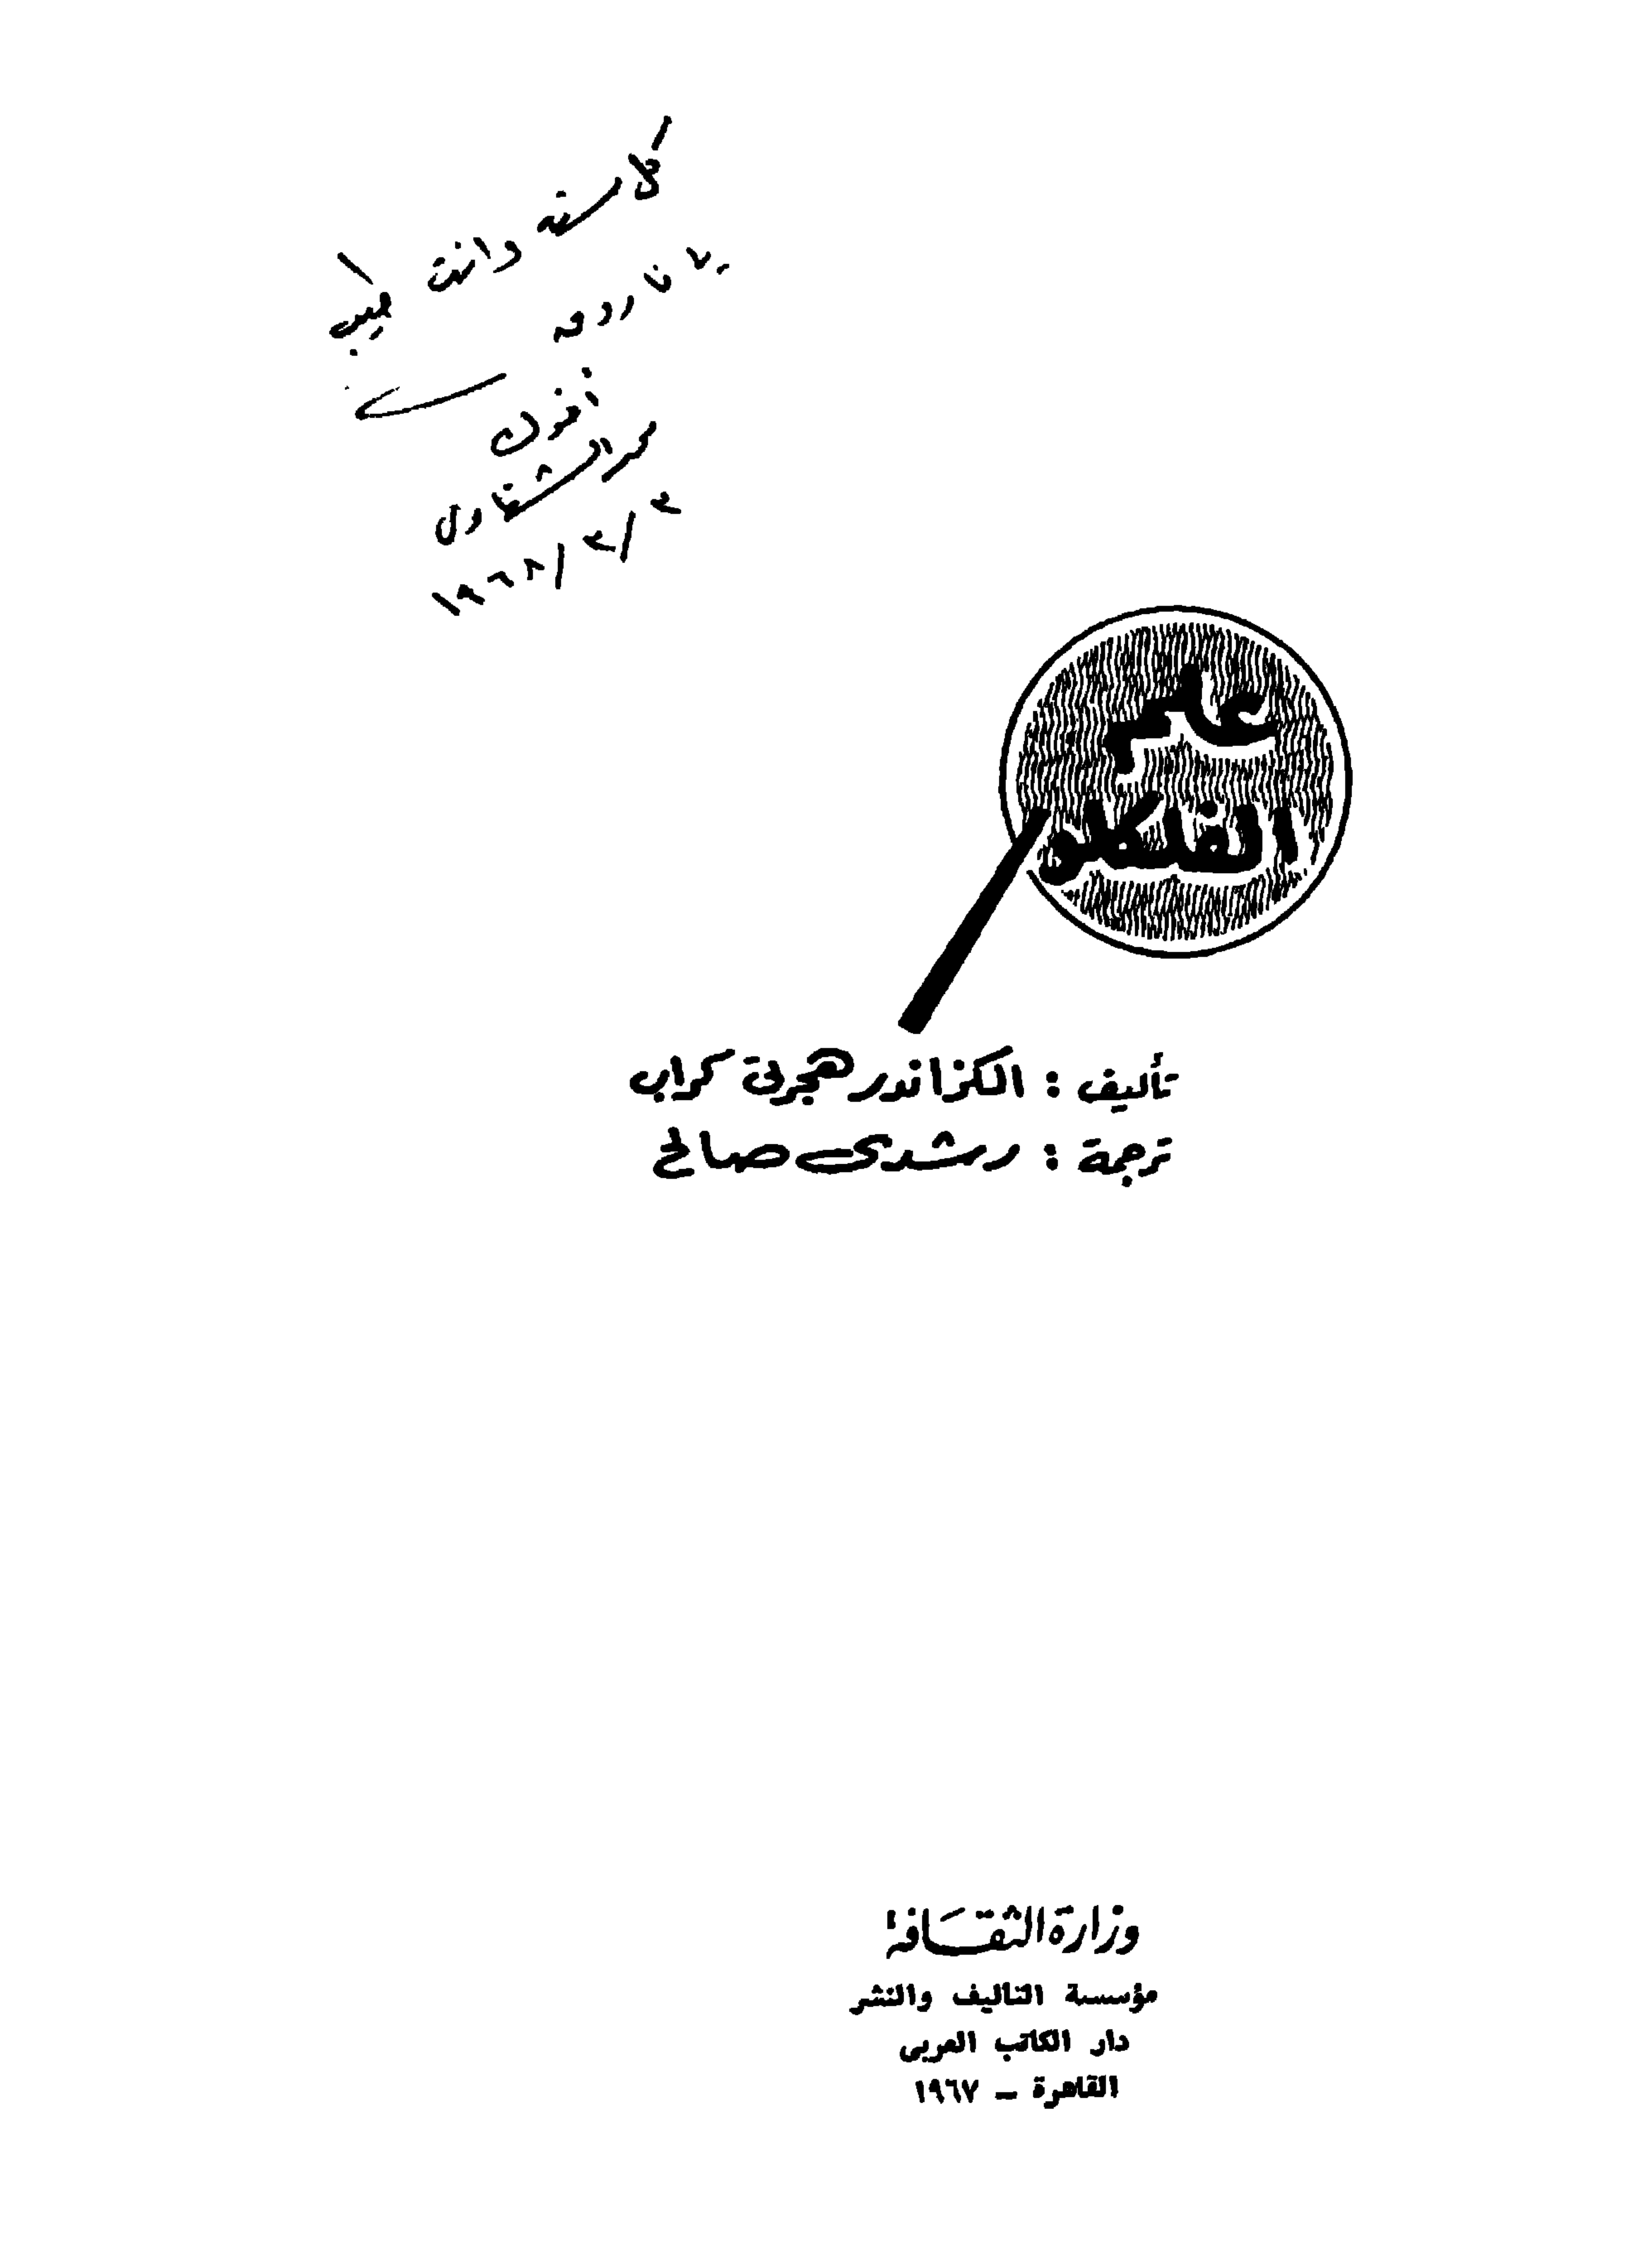 كل سنه وانت طيب
يا فاروق
أخوك
علم
الفلكلور
تأليف : الكزاندر هجرتى كراب
ترجمة : رشدى صالح
وزارة الثقافة
مؤسسة التاليف والنشر
دار الكاتب العربى
القاهرة – ١٩٦٧